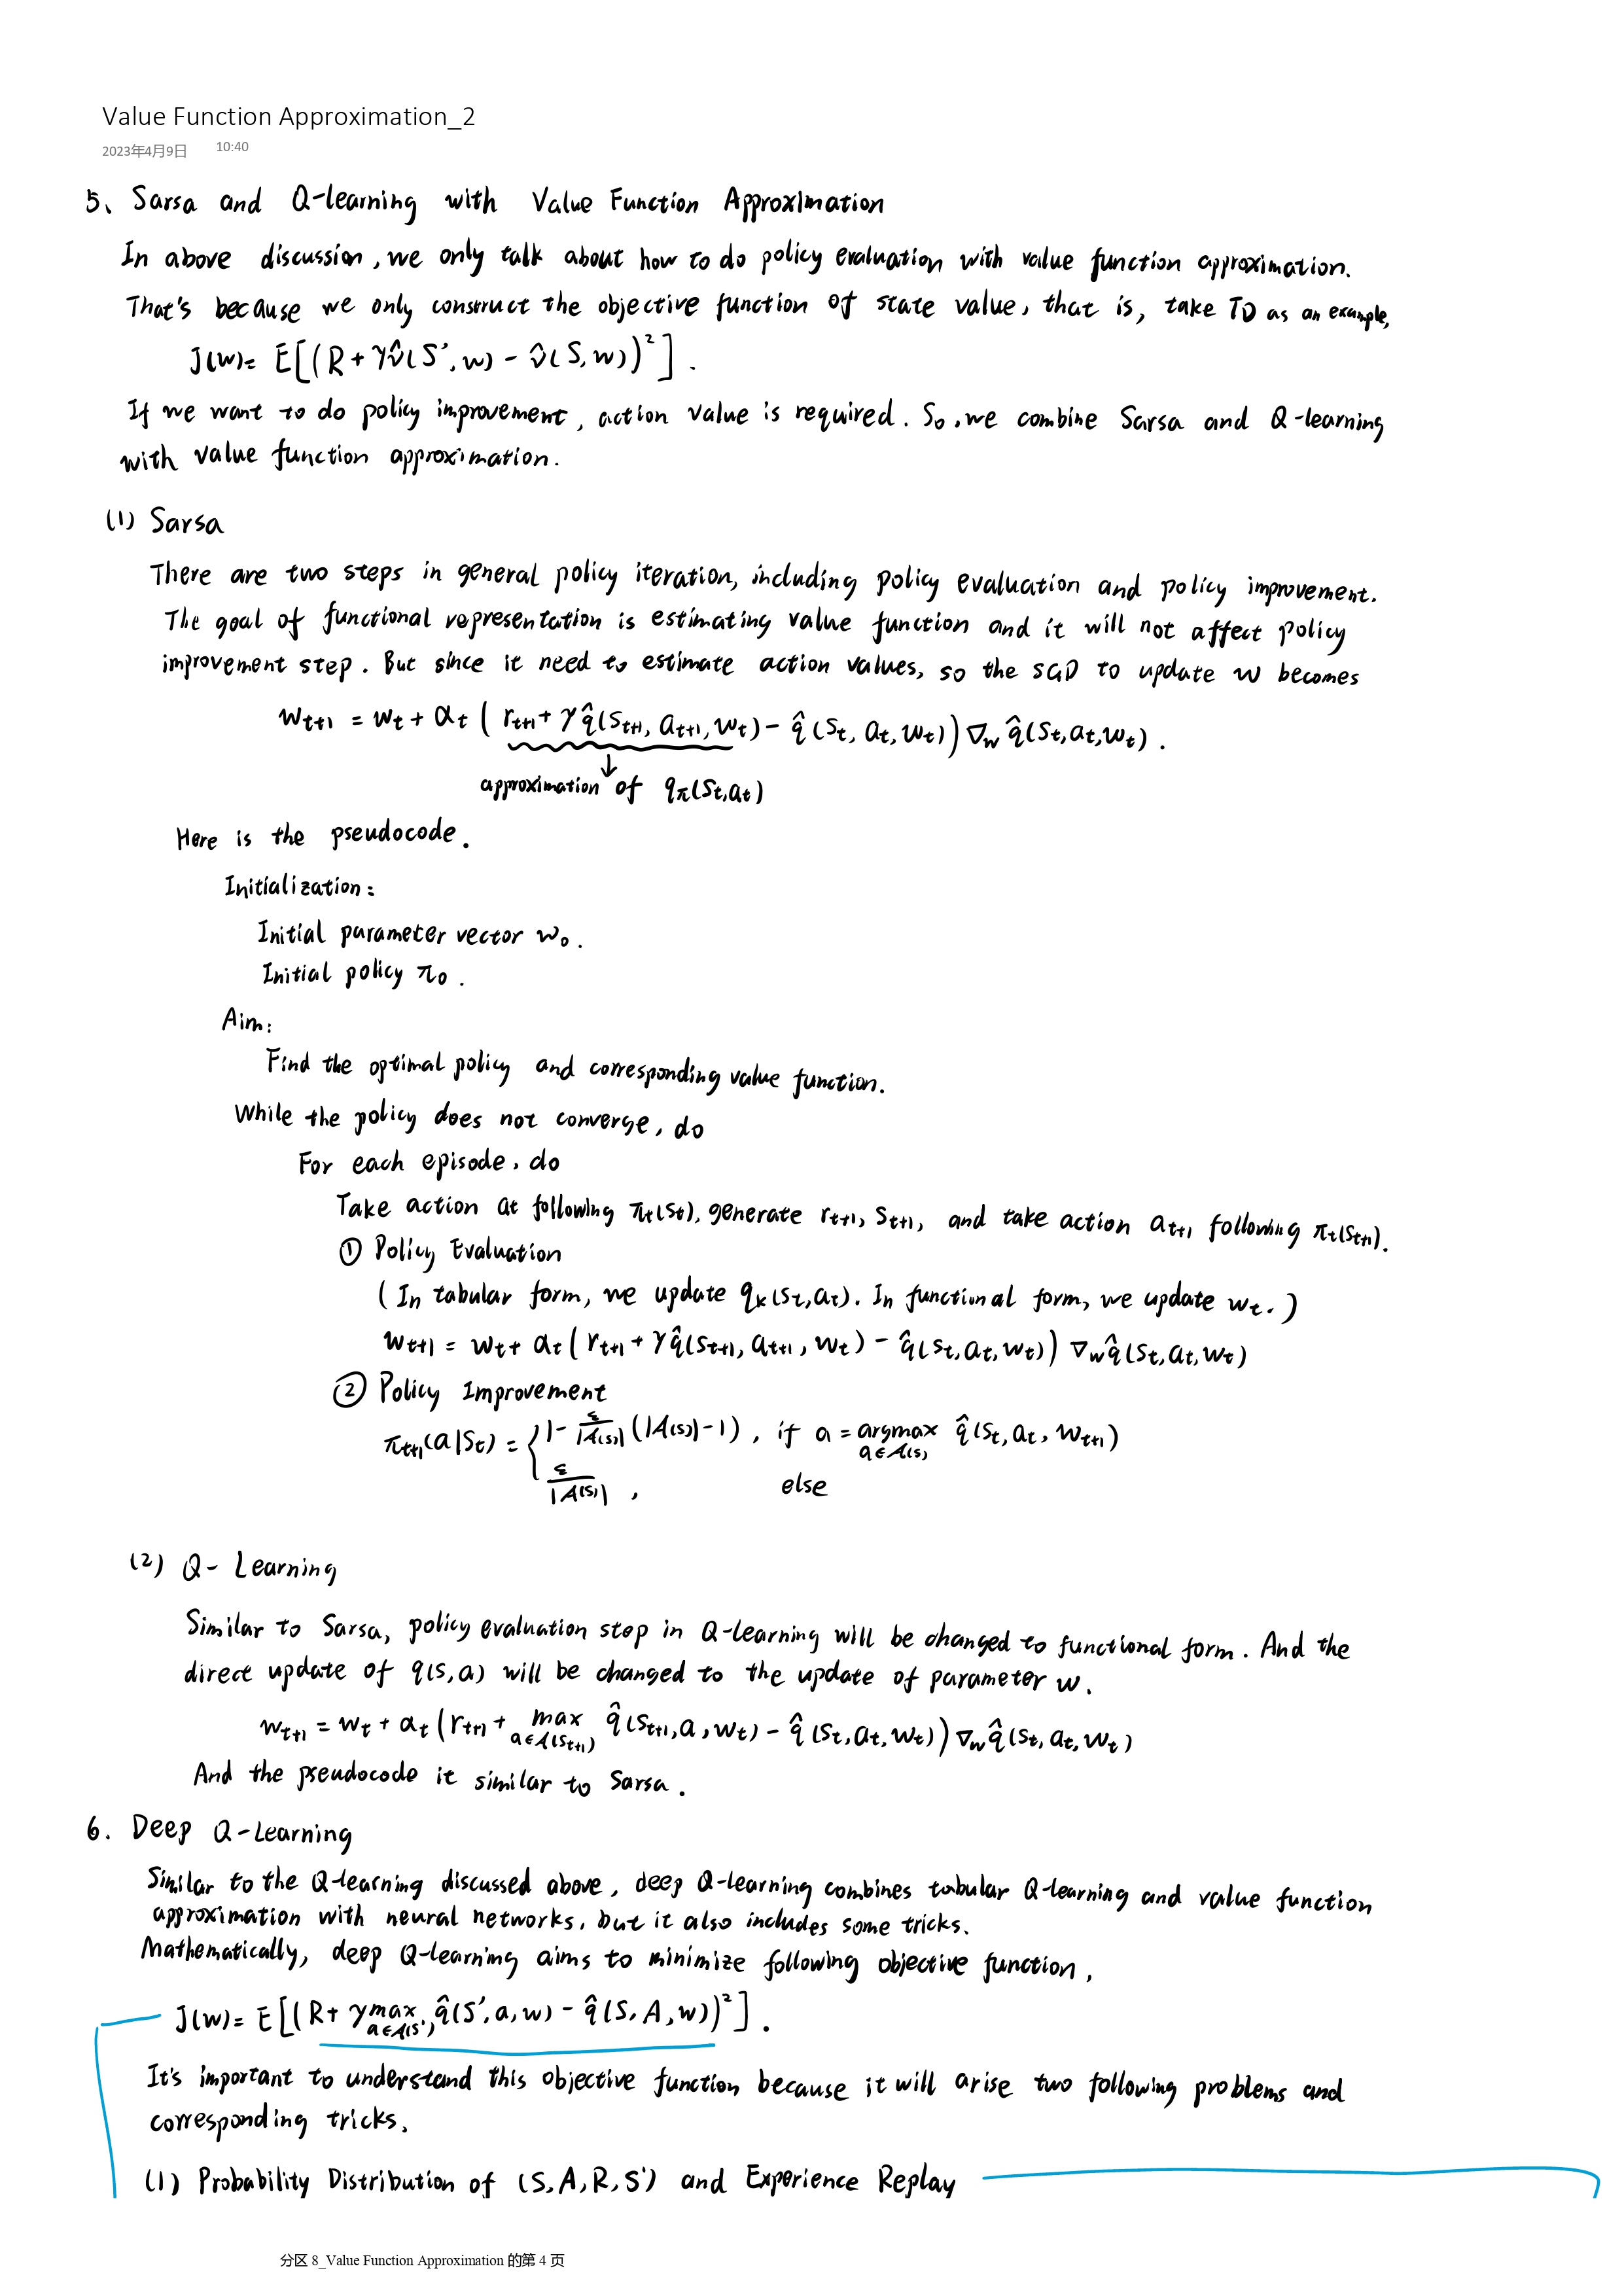 Value Function Approximation_2
2023年4月9日 10:40
5、Sarsa and Q-learning with Value Function Approximation
In above discussion, we only talk about how to do policy evaluation with value function approximation.
That's because we only construct the objective function of state value, that is, take TD as an example,
J(w)= E[(R+γv̂(S',w)-v̂(S,w))²].
If we want to do policy improvement, action value is required. So, we combine Sarsa and Q-learning
with value function approximation.
(1) Sarsa
There are two steps in general policy iteration, including policy evaluation and policy improvement.
The goal of functional representation is estimating value function and it will not affect policy
improvement step. But since it need to estimate action values, so the SGD to update w becomes
w_{t+1} = w_t + α_t ( r_{t+1} + γq̂(s_{t+1}, a_{t+1}, w_t) - q̂(s_t, a_t, w_t)) ∇_w q̂(s_t, a_t, w_t).
↓
approximation of q_π(s_t,a_t)
Here is the pseudocode.
Initialization:
Initial parameter vector w₀.
Initial policy π₀.
Aim:
Find the optimal policy and corresponding value function.
While the policy does not converge, do
For each episode, do
Take action a_t following π_t(s_t), generate r_{t+1}, s_{t+1}, and take action a_{t+1} following π_t(s_{t+1}).
① Policy Evaluation
(In tabular form, we update q_k(s_t,a_t). In functional form, we update w_t.)
w_{t+1} = w_t + α_t( r_{t+1} + γq̂(s_{t+1}, a_{t+1}, w_t) - q̂(s_t, a_t, w_t)) ∇_w q̂(s_t, a_t, w_t)
② Policy Improvement
π_{t+1}(a|s_t) = { 1 - ε/|A(s)| (|A(s)|-1), if a = argmax_{a∈A(s)} q̂(s_t, a_t, w_{t+1})
ε/|A(s)|, else
(2) Q-Learning
Similar to Sarsa, policy evaluation step in Q-learning will be changed to functional form. And the
direct update of q(s,a) will be changed to the update of parameter w.
w_{t+1} = w_t + α_t (r_{t+1} + max_{a∈A(s_{t+1})} q̂(s_{t+1}, a, w_t) - q̂(s_t, a_t, w_t)) ∇_w q̂(s_t, a_t, w_t)
And the pseudocode it similar to Sarsa.
6. Deep Q-Learning
Similar to the Q-learning discussed above, deep Q-learning combines tabular Q-learning and value function
approximation with neural networks, but it also includes some tricks.
Mathematically, deep Q-learning aims to minimize following objective function,
J(w)= E[(R+ γ max_{a∈A(S')} q̂(S',a,w) - q̂(S,A,w))²].
It's important to understand this objective function because it will arise two following problems and
corresponding tricks.
(1) Probability Distribution of (S,A,R,S') and Experience Replay
分区 8_Value Function Approximation 的第 4 页